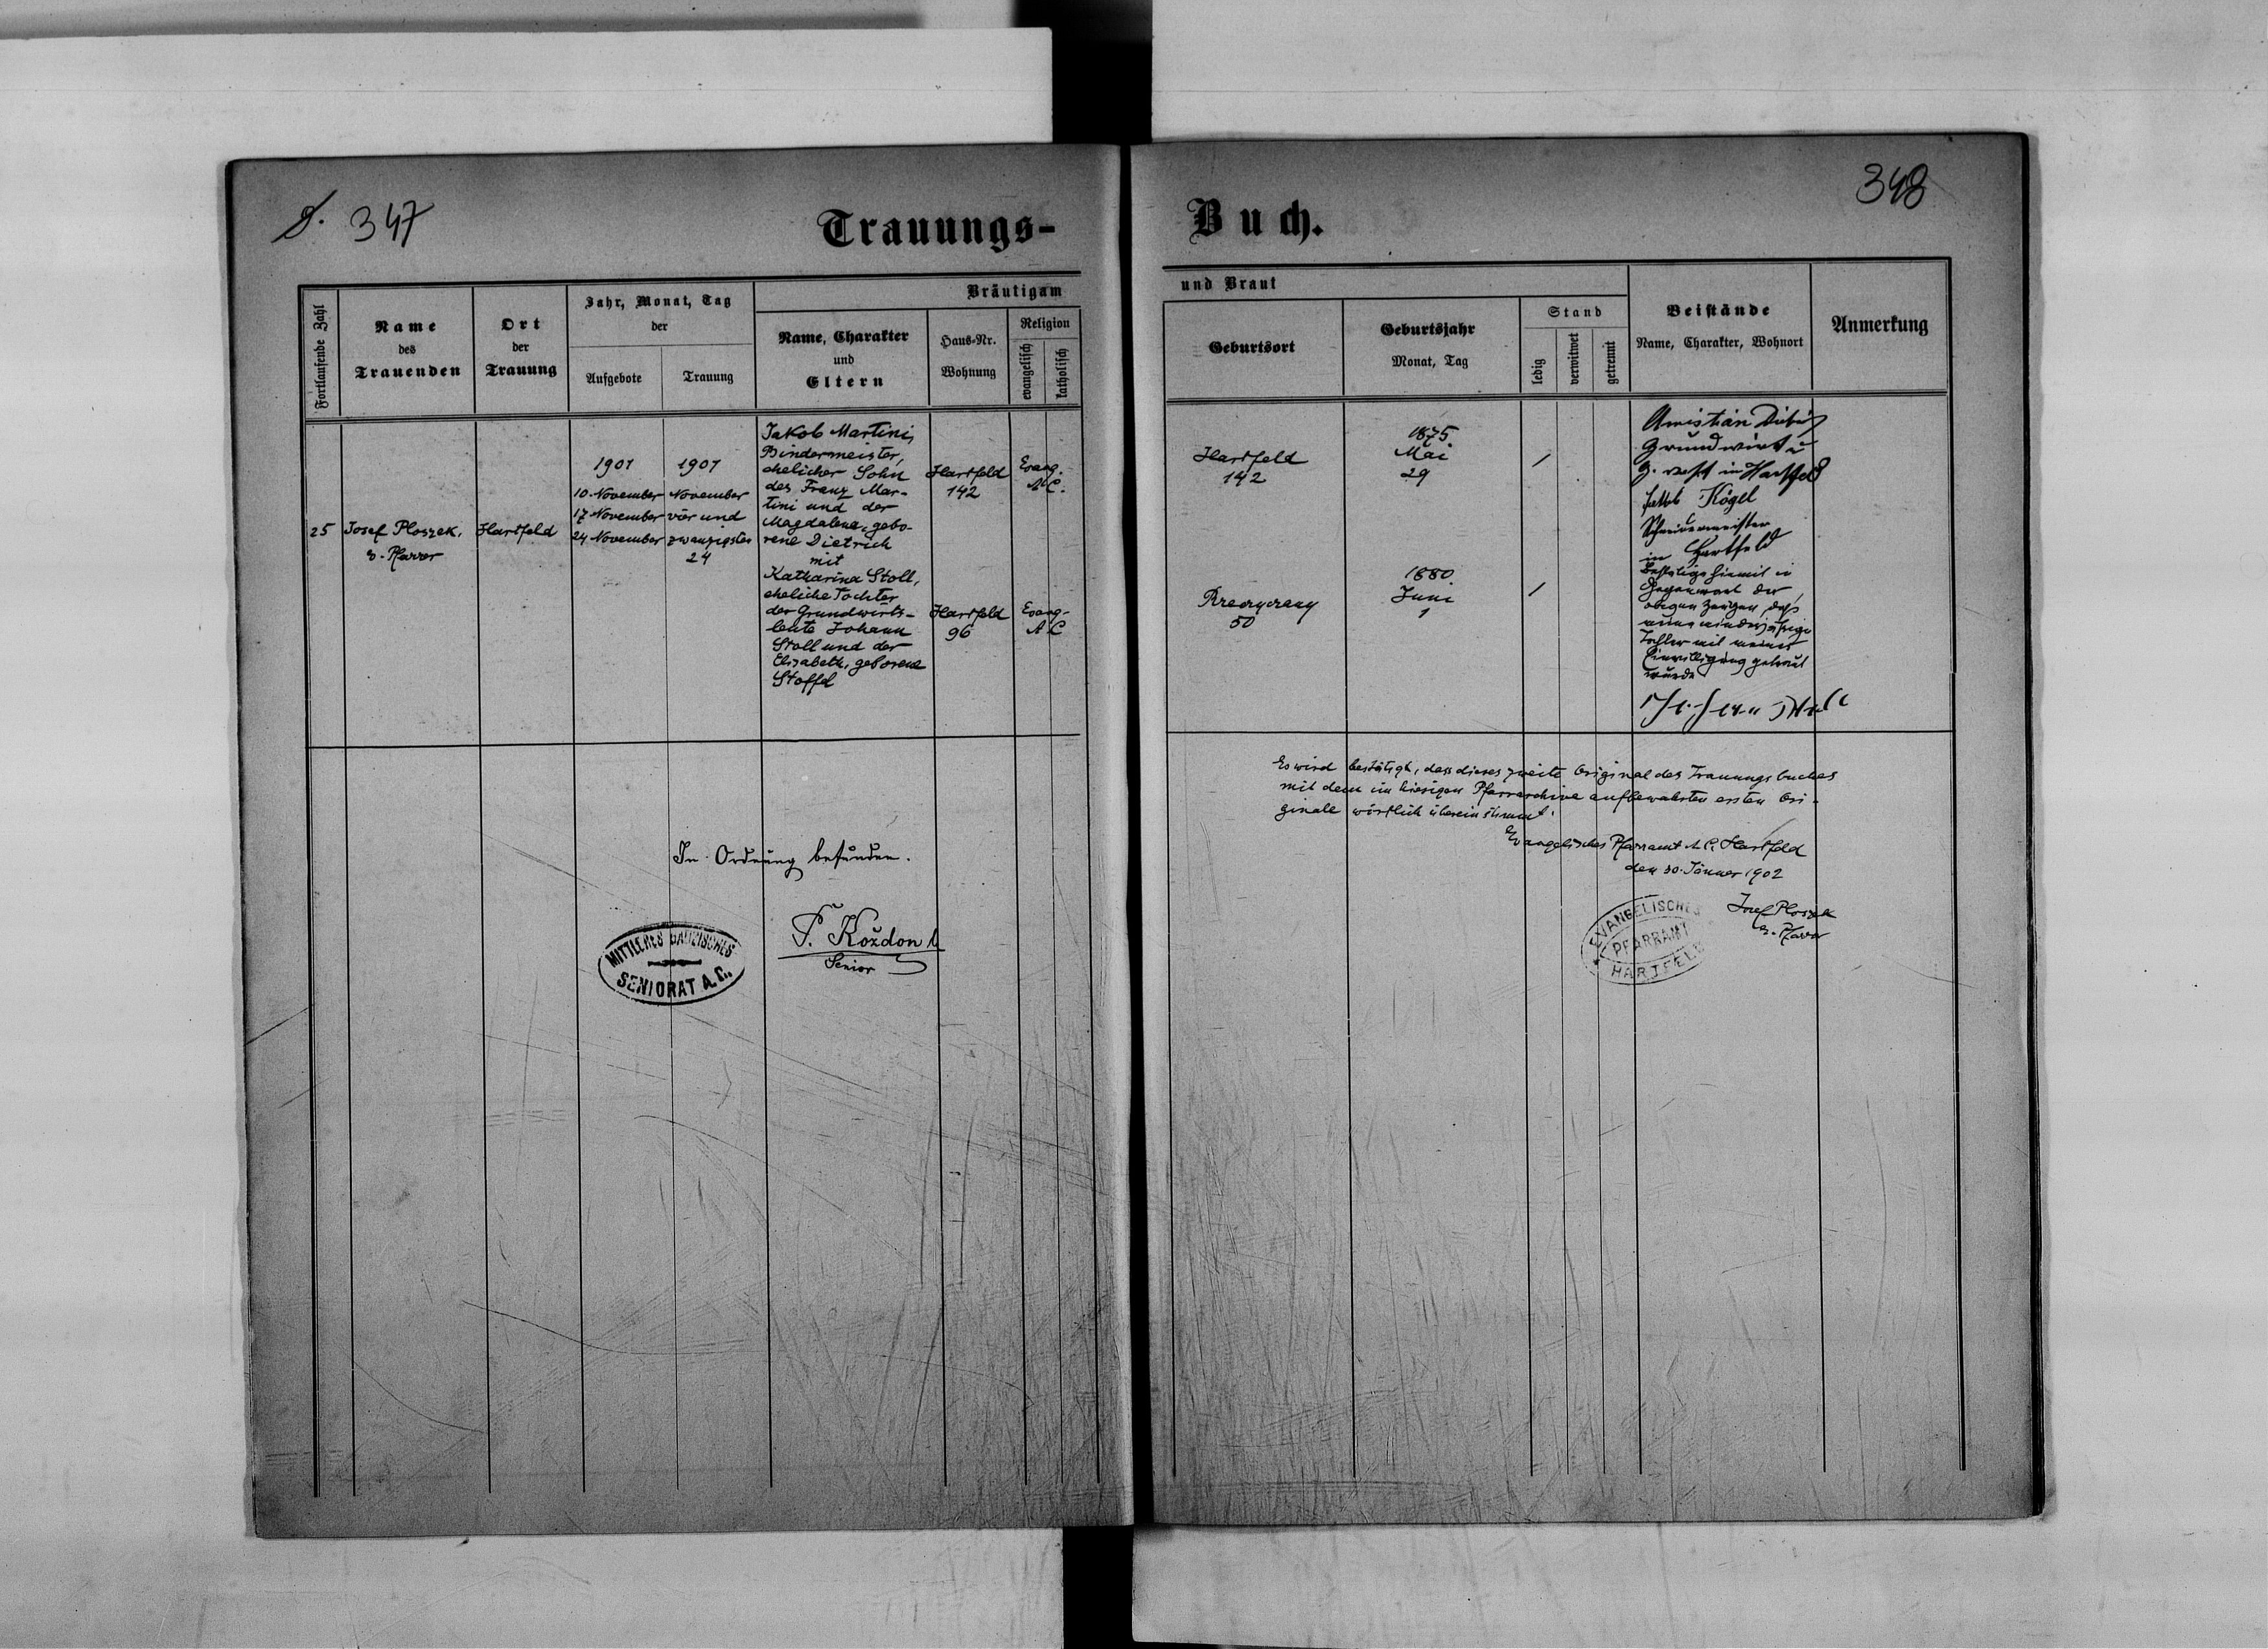 S. 347
348
Trauungs-
Buch.
Fortlaufende Zahl
Name
des
Trauenden
Ort
der
Trauung
Jahr, Monat, Tag
der
Aufgebote
Trauung
Bräutigam
Name, Charakter
und
Eltern
Haus-Nr.
Wohnung
Religion
evangelisch
katholisch
und Braut
Geburtsort
Geburtsjahr
Monat, Tag
Stand
ledig
verwitwet
getrennt
Beistände
Name, Charakter, Wohnort
Anmerkung
25
Josef Ploszek,
Pfarrer
Hartfeld
1901
10. November
17. November
24 November
1901
November
vier und
zwanzigsten
24
Jakob Martini,
Bindermeister,
ehelicher Sohn
des Franz Mar-
tini und der
Magdalena, gebo-
rene Dietrich
mit
Katharina Stoll,
eheliche Tochter
der Grundwirts-
leute Johann
Stoll und der
Elisabeth, geborene
Stoffel
Hartfeld
142
Hartfeld
96
Evang.
A.C.
Evang.
A C
Hartfeld
142
50
1875
Mai
29
1880
Juni
1
/
/
Grundwirt u
in Hartfeld
Jakob Kögel
Schneidermeister
in Hartfeld
Bestätige hiemit in
Gegenwart der
obigen Zeugen, daß
meine minderjährige
Tochter mit meiner
Einwilligung getraut
wurde
Es wird bestätigt, dass dieses zweite Original des Trauungsbuches
mit dem im hiesigen Pfarrarchive aufbewahrten ersten Ori-
ginale wörtlich übereinstimmt.
Evangelisches Pfarramt A.C. Hartfeld
den 30. Jänner 1902
Josef Ploszek
Pfarrer
EVANGELISCHES
PFARRAMT
HARTFELD
In Ordnung befunden.
Koždoň
Senior
MITTLERES GALIZISCHES
SENIORAT A.C.